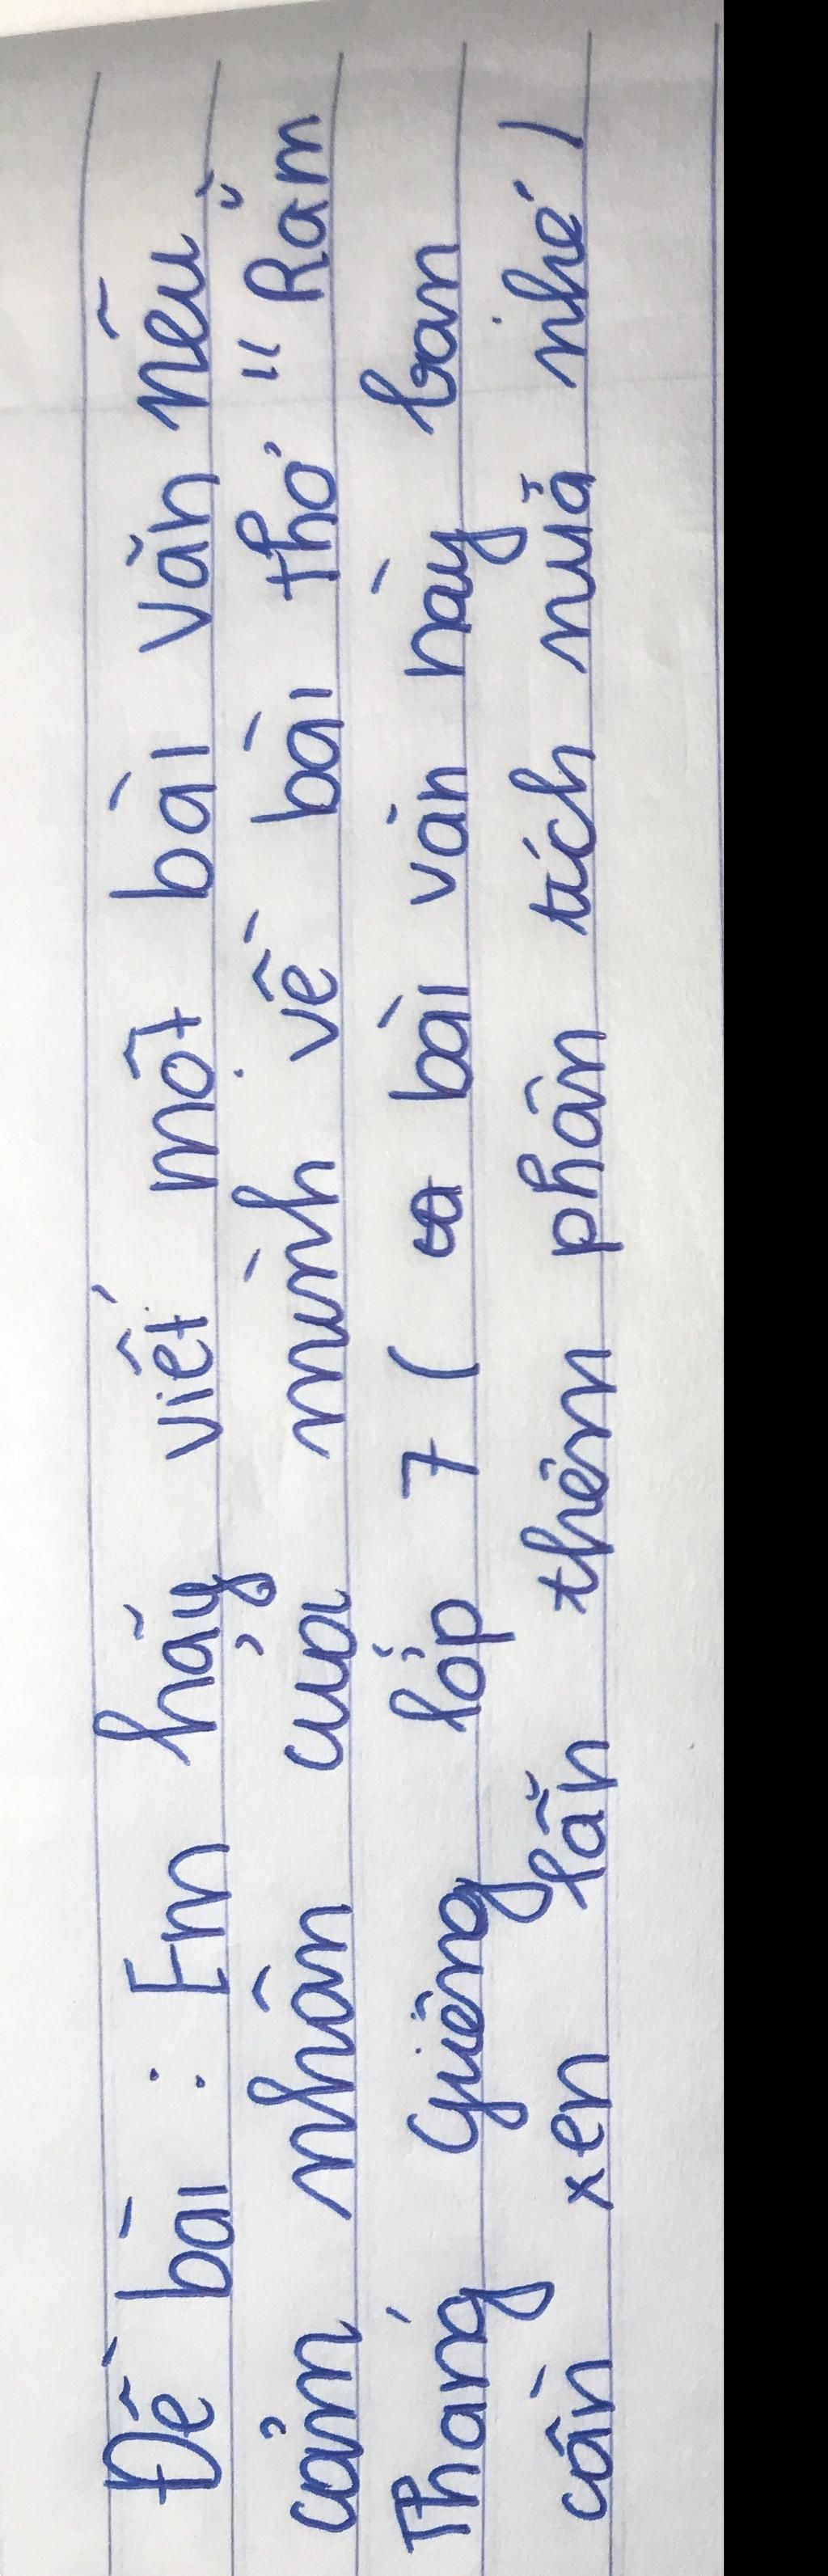 Đề bài : Em hãy viết một bài văn nêu
cảm nhận của mình về bài thơ " Rằm
Tháng Giêng lớp 7 ( bài văn này bạn
cần xen lẫn thêm phân tích nữa nhé )